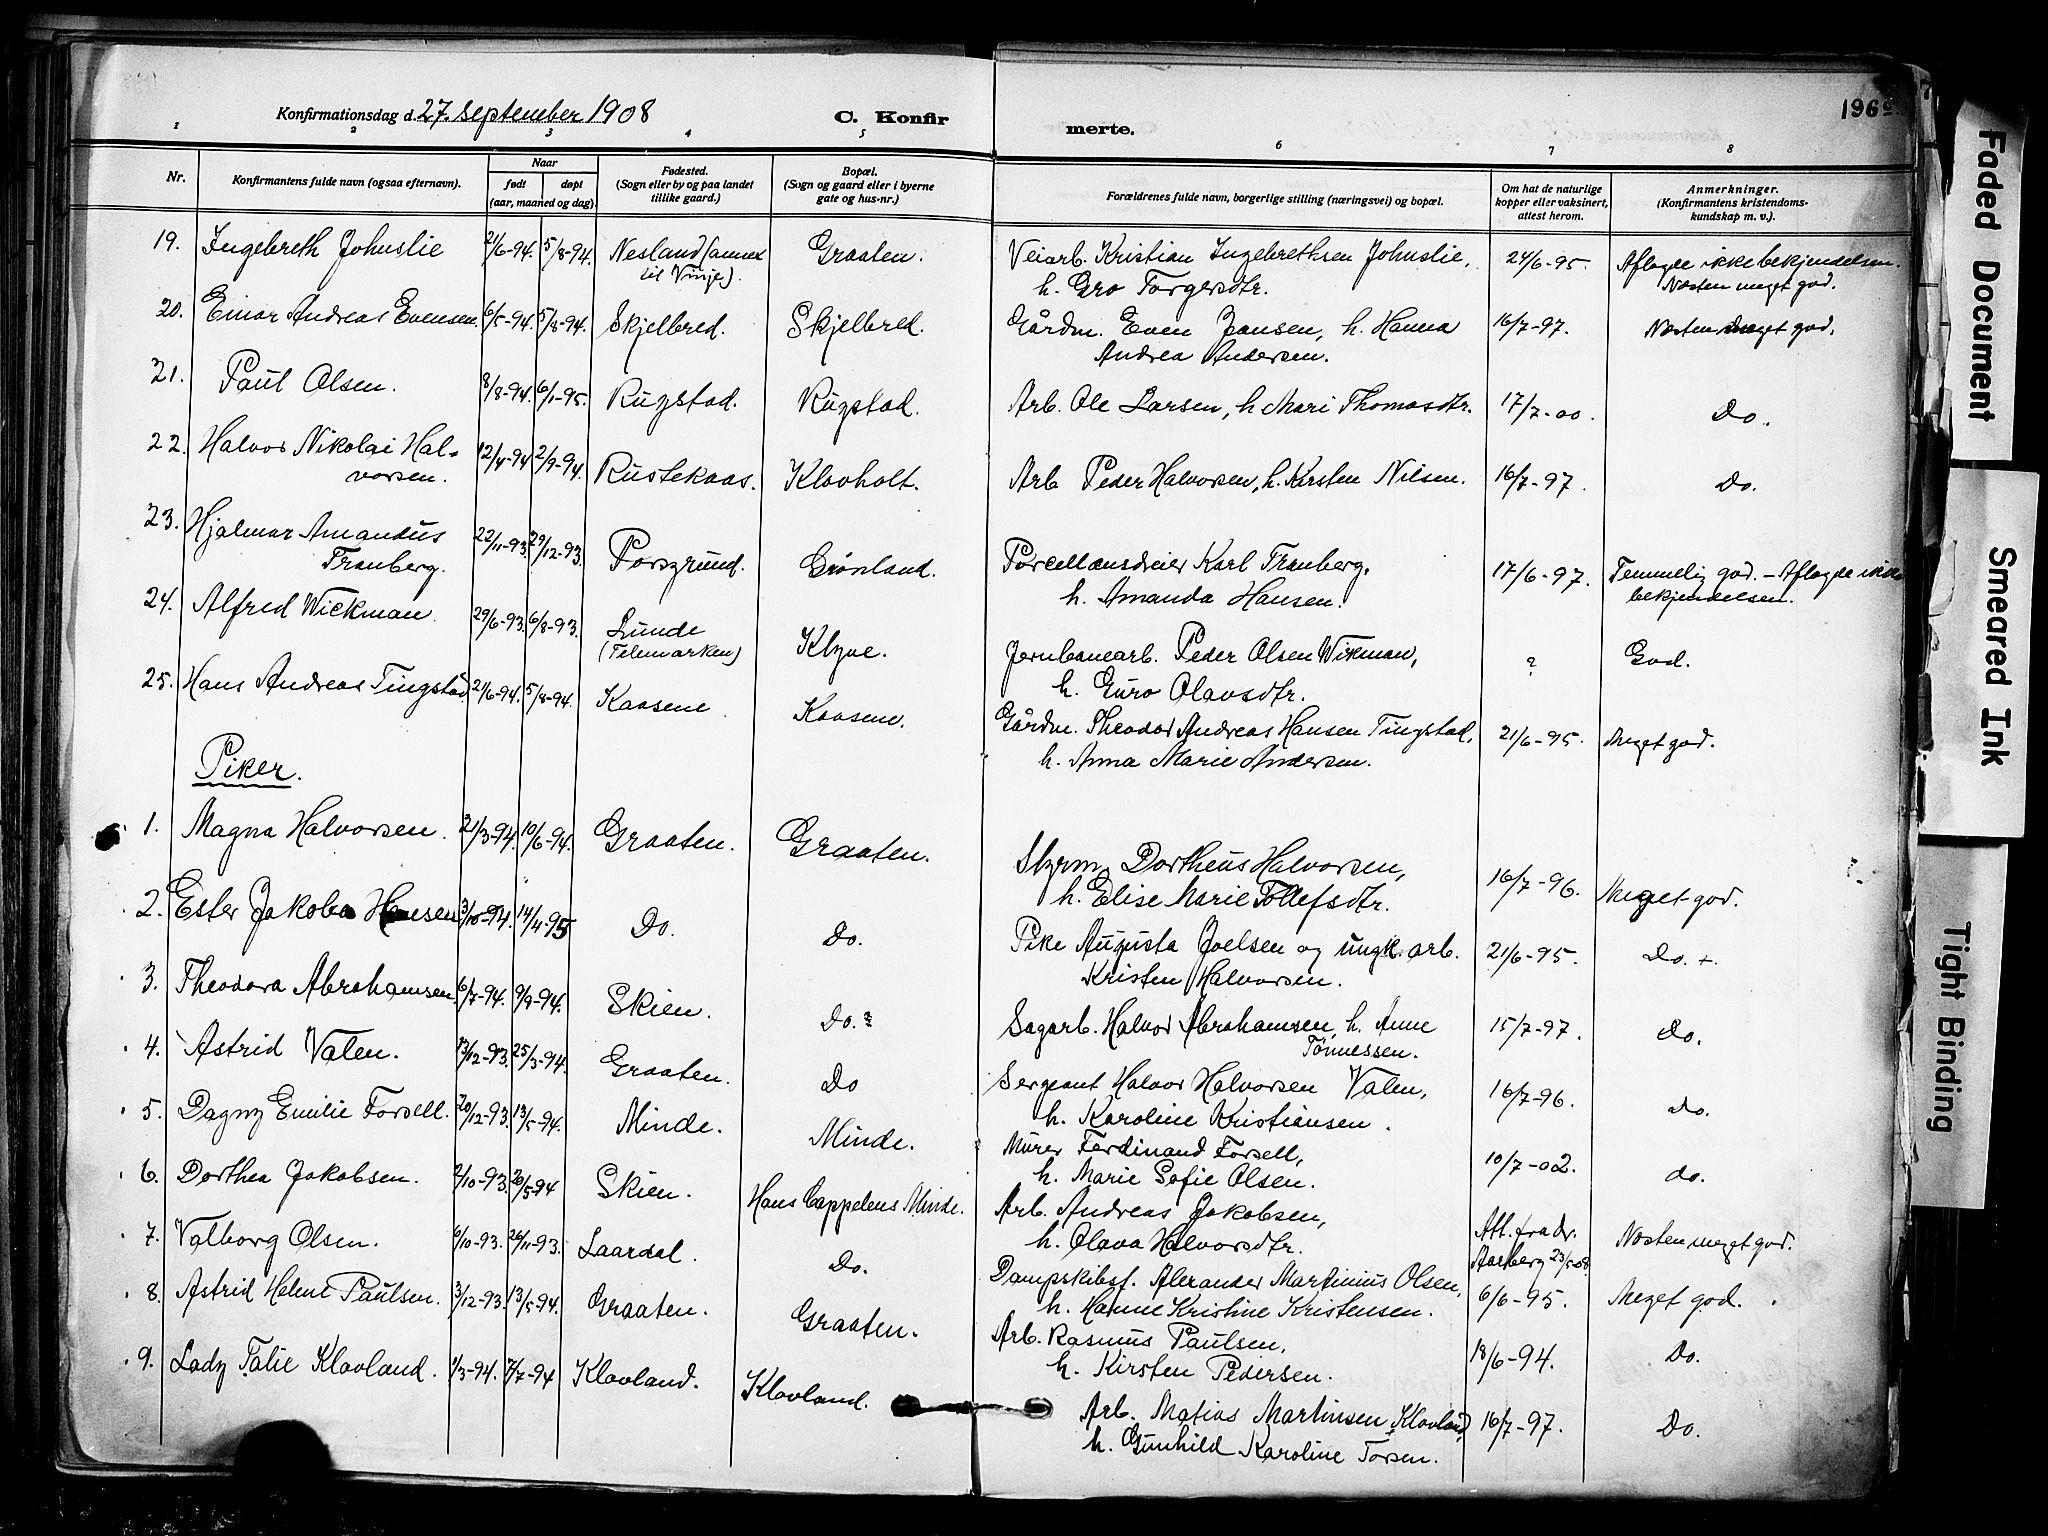 Konfirmationsdag d. 27. september 1908 C. Konfirmerte. 196
1 2 3 4 5 6 7 8
Nr. Konfirmantens fulde navn (ogsaa efternavn). Naar født døpt (aar, maaned og dag). Fødested. (Sogn eller by og paa landet tillike gaard.) Bopæl. (Sogn og gaard eller i byerne gate og hus-nr.) Forældrenes fulde navn, borgerlige stilling (næringsvei) og bopæl. Om hat de naturlige kopper eller vaksinert, attest herom. Anmerkninger. (Konfirmantens kristendomskundskap m. v.).
19. Ingebreth Johnslie 2/6-94. 5/8-94. Nesland (annex til Vinje). Graaten. Veiarb. Kristian Ingebrethsen Johnslie, h. Gro Torgersdtr. 24/6-95. Aflagde ikke bekjendelsen. Næsten meget god.
20. Einar Andreas Evensen 6/5-94. 5/8-94. Skjelbred. Skjelbred. Gårdm. Even Jansen, h. Hanna Andrea Andersen. 16/7-97. Næsten meget god.
21. Paul Olsen. 8/8-94. 6/1-95. Rugstad. Rugstad. Arb. Ole Larsen, h. Mari Thomasdtr. 17/7-00. Do.
22. Halvor Nikolai Halvorsen. 12/4-94 2/9-94. Rustekaas. Klovholt. Arb Peder Halvorsen, h. Kirsten Nilsen. 16/7-97. Do.
23. Hjalmar Amandus Tranberg. 22/11-93. 29/12-93. Porsgrund. Grønland. Porcellansdreier Karl Tranberg, h. Amanda Hansen. 17/6-97. Temmelig god. - Aflagde ikke bekjendelsen.
24. Alfred Wickman. 29/6-93. 6/8-93. Lunde (Telemarken) Klyve. Jernbanearb. Peder Olsen Wikman, h. Guro Olavsdtr. ? God.
25. Hans Andreas Tingstad 2/6-94. 5/8-94. Kaasene Kaasene. Gårdm. Theodor Andreas Hansen Tingstad, h. Anna Marie Andersen. 21/6-95. Meget god.
Piker.
1. Magna Halvorsen. 21/3-94. 10/6-94. Graaten. Graaten. Styrm. Dortheus Halvorsen, h. Elise Marie Tollefsdtr. 16/7-96. Meget god.
2. Ester Jakoba Hansen 3/10-94. 14/4-95 Do. Do. Pike Augusta Joelsen og ungk. arb. Kristen Halvorsen. 21/6-95. Do. +.
3. Theodora Abrahamsen 6/7-94. 9/9-94. Skien. Do. Sagarb. Halvor Abrahamsen, h. Anne Tønnessen. 15/7-97. Do.
4. Astrid Valen. 13/12-93. 25/3-94. Graaten. Do Sergeant Halvor Halvorsen Valen, h. Karoline Kristiansen. 16/7-96. Do.
5. Dagny Emilie Forsell. 20/12-93. 13/5-94. Minde. Minde. Murer Ferdinand Forsell, h. Marie Sofie Olsen. 10/7-02. do.
6. Dorthea Jakobsen. 2/10-93. 20/5-94 Skien. Hans Cappelens Minde. Arb. Andreas Jakobsen, h. Olava Halvorsdtr. Att. fra dr. Aarberg 23/5-08. Næsten meget god.
7. Valborg Olsen. 6/10-93. 26/11-93. Laardal. Do. Dampskibsf. Alexander Martinius Olsen, h. Hanne Kristine Kristensen. 6/6-95. Meget god.
8. Astrid Helene Paulsen. 3/12-93. 13/5-94. Graaten. Graaten. Arb. Rasmus Paulsen, h. Kirsten Pedersen. 18/6-94. Do.
9. Lady Talie Klovland. 1/3-94. 7/7-94 Klovland. Klovland. Arb. Matias Martinsen Klovland, h. Gunhild Karoline Torsen. 16/7-97. Do.
Faded Document
Smeared Ink
Tight Binding